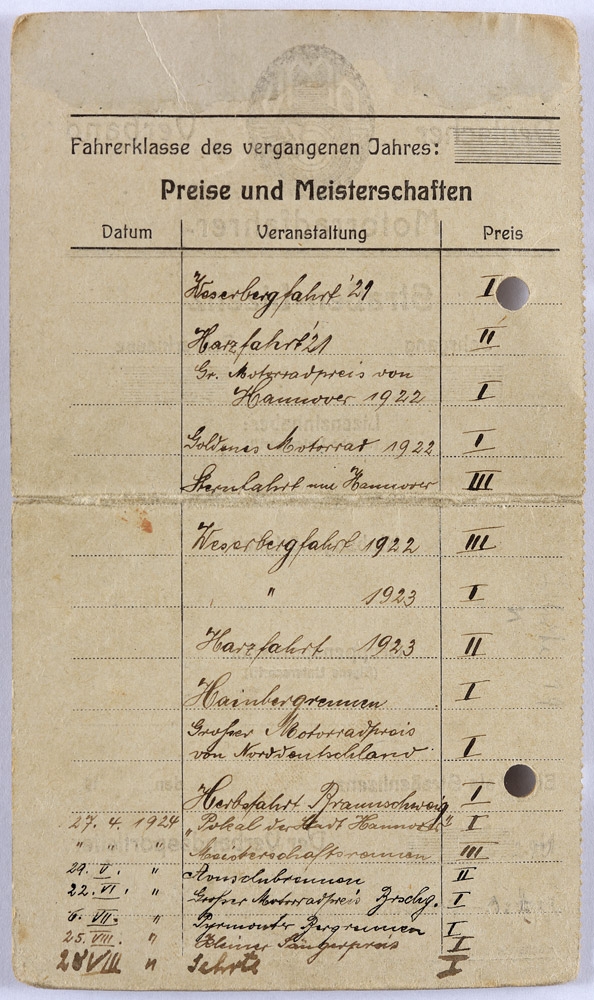 Fahrerklasse des vergangenen Jahres:
Preise und Meisterschaften
Datum Veranstaltung Preis
Weserbergfahrt '21 I
Harzfahrt '21 II
Gr. Motorradpreis von
Hannover 1922 I
Goldenes Motorrad 1922 I
Sternfahrt Hannover III
Weserbergfahrt 1922 III
" 1923 I
Harzfahrt 1923 II
Hainbergrennen I
Großer Motorradpreis
von Norddeutschland I
Herbstfahrt Braunschweig I
27. 4. 1924 "Pokal der Stadt Hannover" I
" " " Meisterschaftsrennen III
29. V. " II
22. VI. " Großer Motorradpreis Brschg. I
6. VII. " Pyrmonter Bergrennen I
25. VIII. " Kleiner I
28 VIII " Sehrte I